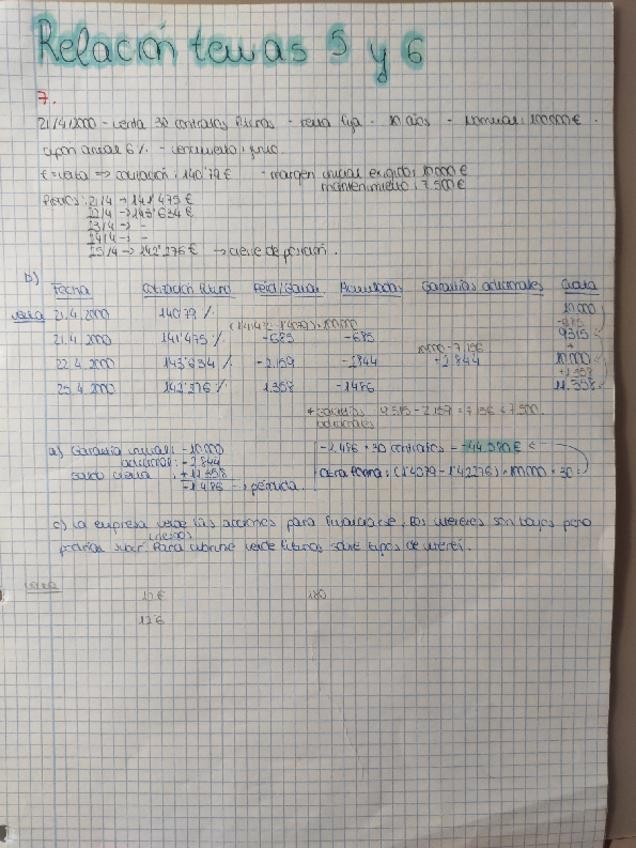 Relación temas 5 y 6
7.
21/4/2000 - venta 30 contratos futuros - renta fija - 10 años - nominal: 100.000 € -
cupón anual 6% - vencimiento: junio.
- margen inicial exigido: 10000 €
€ = venta => cotización: 140'79 €
mantenimiento: 7.500 €
Precios: 21/4 → 141'475 €
22/4 → 143'634 €
23/4 → -
24/4 → -
25/4 → 142'276 € → cierre de posición.
b) Fecha Cotización futuro Pérd/Ganan Acumuladas Garantías adicionales Cuenta
venta 21.4.2000 140'79 % 10.000
-685
21.4.2000 141'475 % -685 -685 9315
10.000 - 7.156 +
22.4.2000 143'634 % -2.159 -2844 +2.844 10.000
+1.358
25.4.2000 142'276 % 1.358 -1486 11.358
* garantías 9.315 - 2.159 = 7.156 < 7.500.
adicionales
a) Garantía inicial: -10.000
adicional: -2.844
saldo cuenta: +11.358
-1.486 → pérdida.
-1.486 · 30 contratos = -44.580 €
otra forma: (1'4079 - 1'42276) · 100.000 · 30
c) La empresa vende las acciones para financiarse, los intereses son bajos pero
podrían subir. Para cubrirse vende futuros sobre tipos de interés.
12€ 180
12€